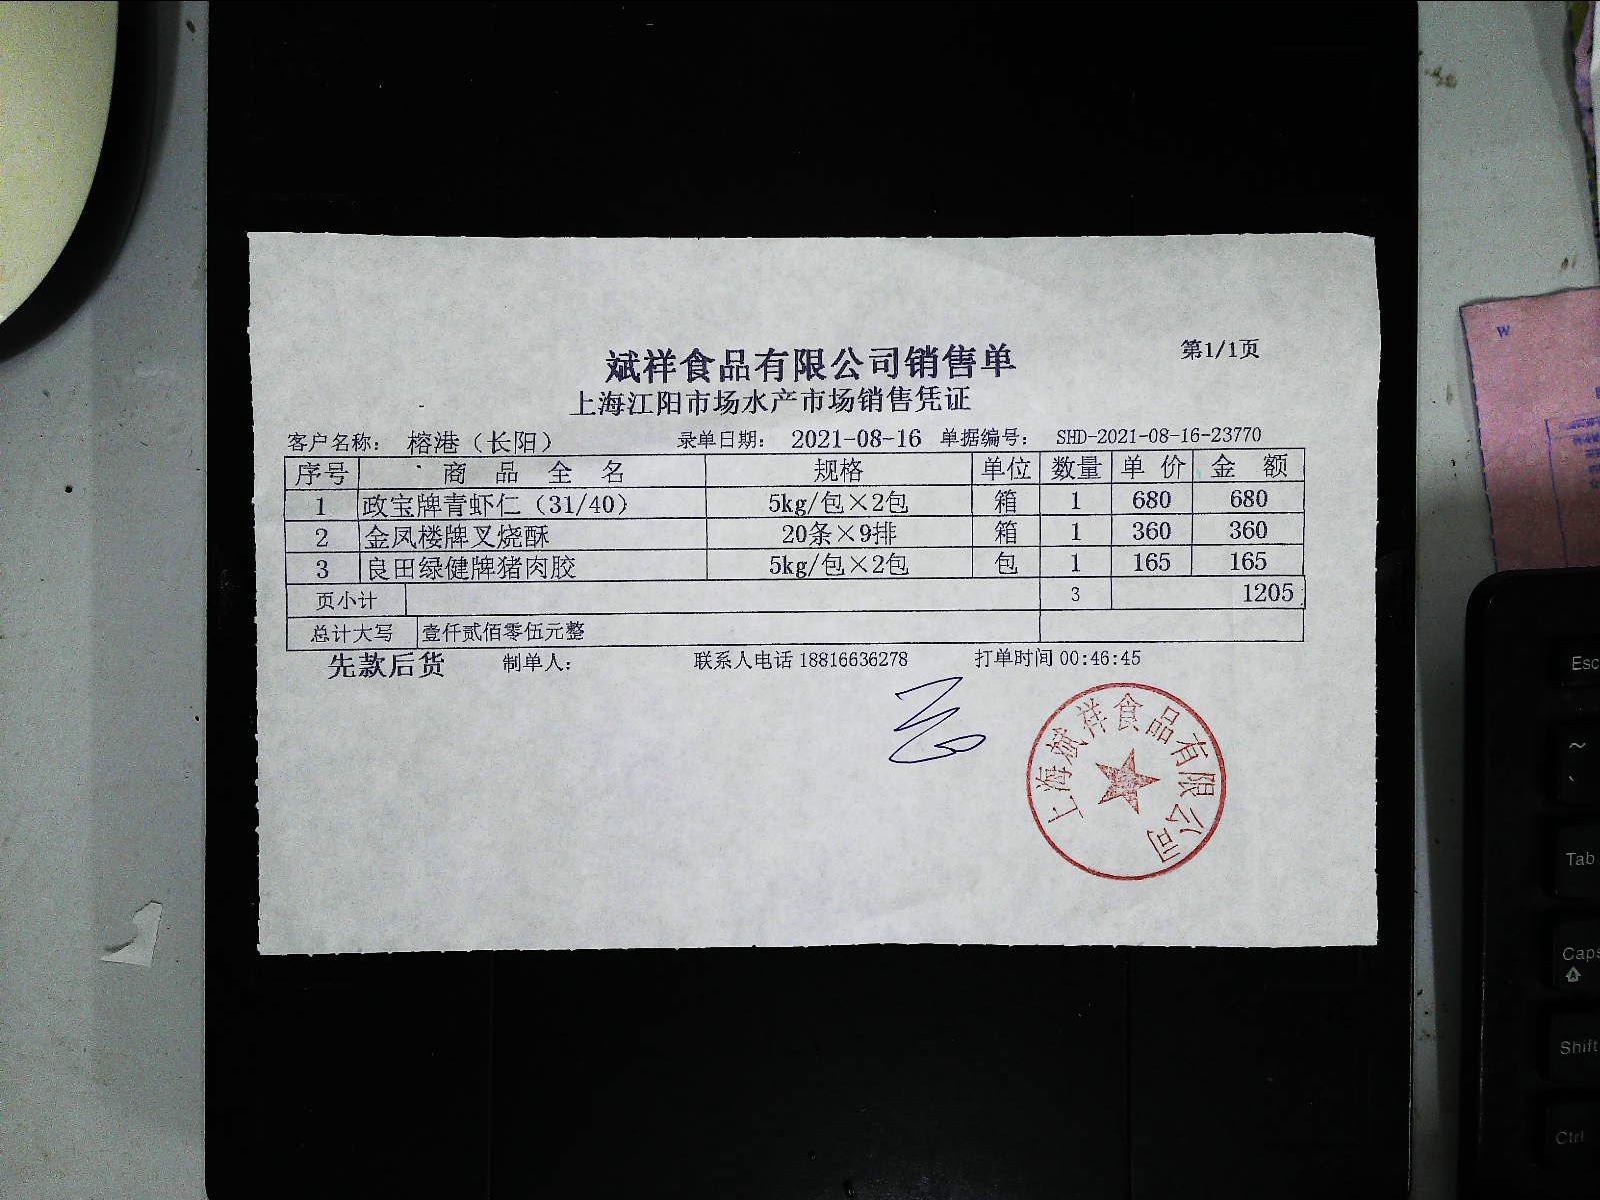 斌祥食品有限公司销售单
第1/1页
上海江阳市场水产市场销售凭证
客户名称： 榕港（长阳） 录单日期： 2021-08-16 单据编号： SHD-2021-08-16-23770
序号 商 品 全 名 规格 单位 数量 单 价 金 额
1 政宝牌青虾仁（31/40） 5kg/包×2包 箱 1 680 680
2 金凤楼牌叉烧酥 20条×9排 箱 1 360 360
3 良田绿健牌猪肉胶 5kg/包×2包 包 1 165 165
页小计 3 1205
总计大写 壹仟贰佰零伍元整
先款后货 制单人： 联系人电话 18816636278 打单时间 00:46:45
上海斌祥食品有限公司
W
Esc
~
`
Tab
Caps
Shift
Ctrl